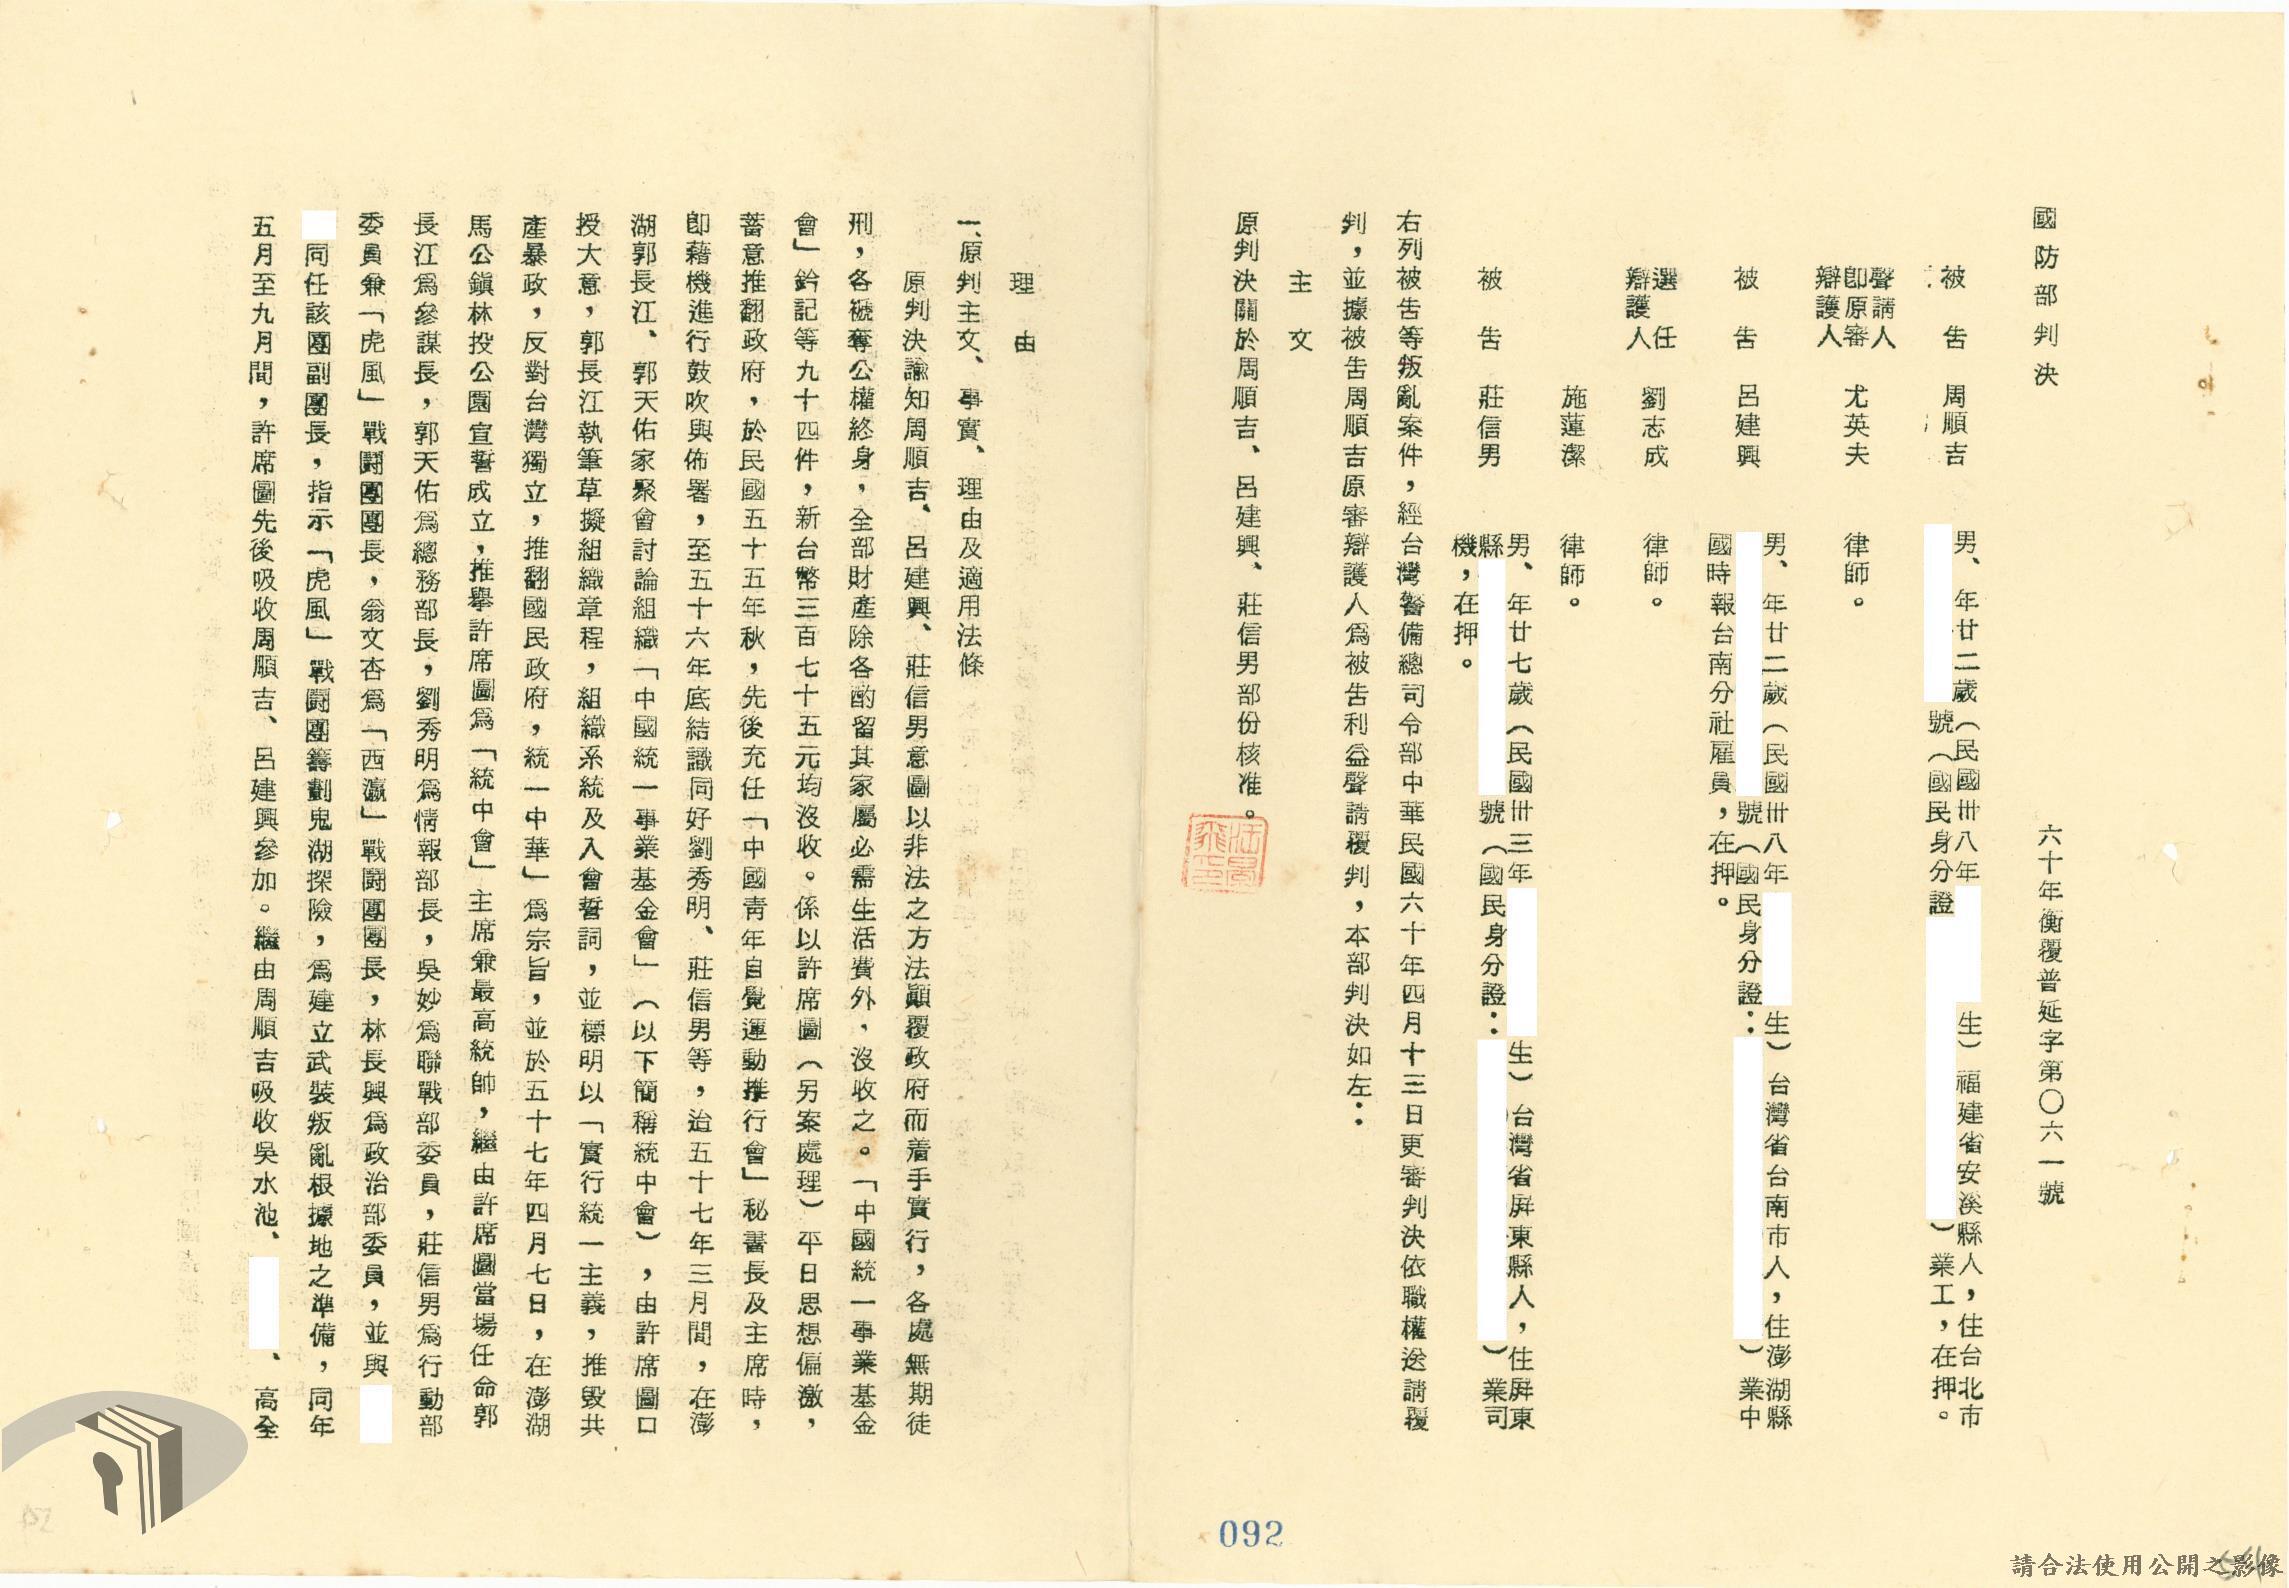 國防部判決
六十年衡覆普延字第〇六一號
被告 周順吉 男、年廿二歲(民國卅八年
生)福建省安溪縣人,住台北市
號(國民身分證
)業工,在押。
聲請人
即原審
辯護人 尤英夫 律師。
被告 呂建興 男、年廿二歲(民國卅八年
生)台灣省台南市人,住澎湖縣
號(國民身分證:
)業中
國時報台南分社雇員,在押。
選任
辯護人 劉志成 律師。
施蓮潔 律師。
被告 莊信男 男、年廿七歲(民國卅三年
生)台灣省屏東縣人,住屏東
縣
號(國民身分證:
)業司
機,在押。
右列被告等叛亂案件,經台灣警備總司令部中華民國六十年四月十三日更審判決依職權送請覆
判,並據被告周順吉原審辯護人為被告利益聲請覆判,本部判決如左:
主文
原判決關於周順吉、呂建興、莊信男部份核准。
理由
一、原判主文、事實、理由及適用法條
原判決諭知周順吉、呂建興、莊信男意圖以非法之方法顛覆政府而着手實行,各處無期徒
刑,各褫奪公權終身,全部財產除各酌留其家屬必需生活費外,沒收之。「中國統一事業基金
會」鈐記等九十四件,新台幣三百七十五元均沒收。係以許席圖(另案處理)平日思想偏激,
蓄意推翻政府,於民國五十五年秋,先後充任「中國青年自覺運動推行會」秘書長及主席時,
即藉機進行鼓吹與佈署,至五十六年底結識同好劉秀明、莊信男等,迨五十七年三月間,在澎
湖郭長江、郭天佑家聚會討論組織「中國統一事業基金會」(以下簡稱統中會),由許席圖口
授大意,郭長江執筆草擬組織章程,組織系統及入會誓詞,並標明以「實行統一主義,推毀共
產暴政,反對台灣獨立,推翻國民政府,統一中華」為宗旨,並於五十七年四月七日,在澎湖
馬公鎮林投公園宣誓成立,推舉許席圖為「統中會」主席兼最高統帥,繼由許席圖當場任命郭
長江為參謀長,郭天佑為總務部長,劉秀明為情報部長,吳妙為聯戰部委員,莊信男為行動部
委員兼「虎風」戰鬪團團長,翁文杏為「西瀛」戰鬪團團長,林長興為政治部委員,並與
同任該團副團長,指示「虎風」戰鬪團籌劃鬼湖探險,為建立武裝叛亂根據地之準備,同年
五月至九月間,許席圖先後吸收周順吉、呂建興參加。繼由周順吉吸收吳水池、
、高全
092
請合法使用公開之影像